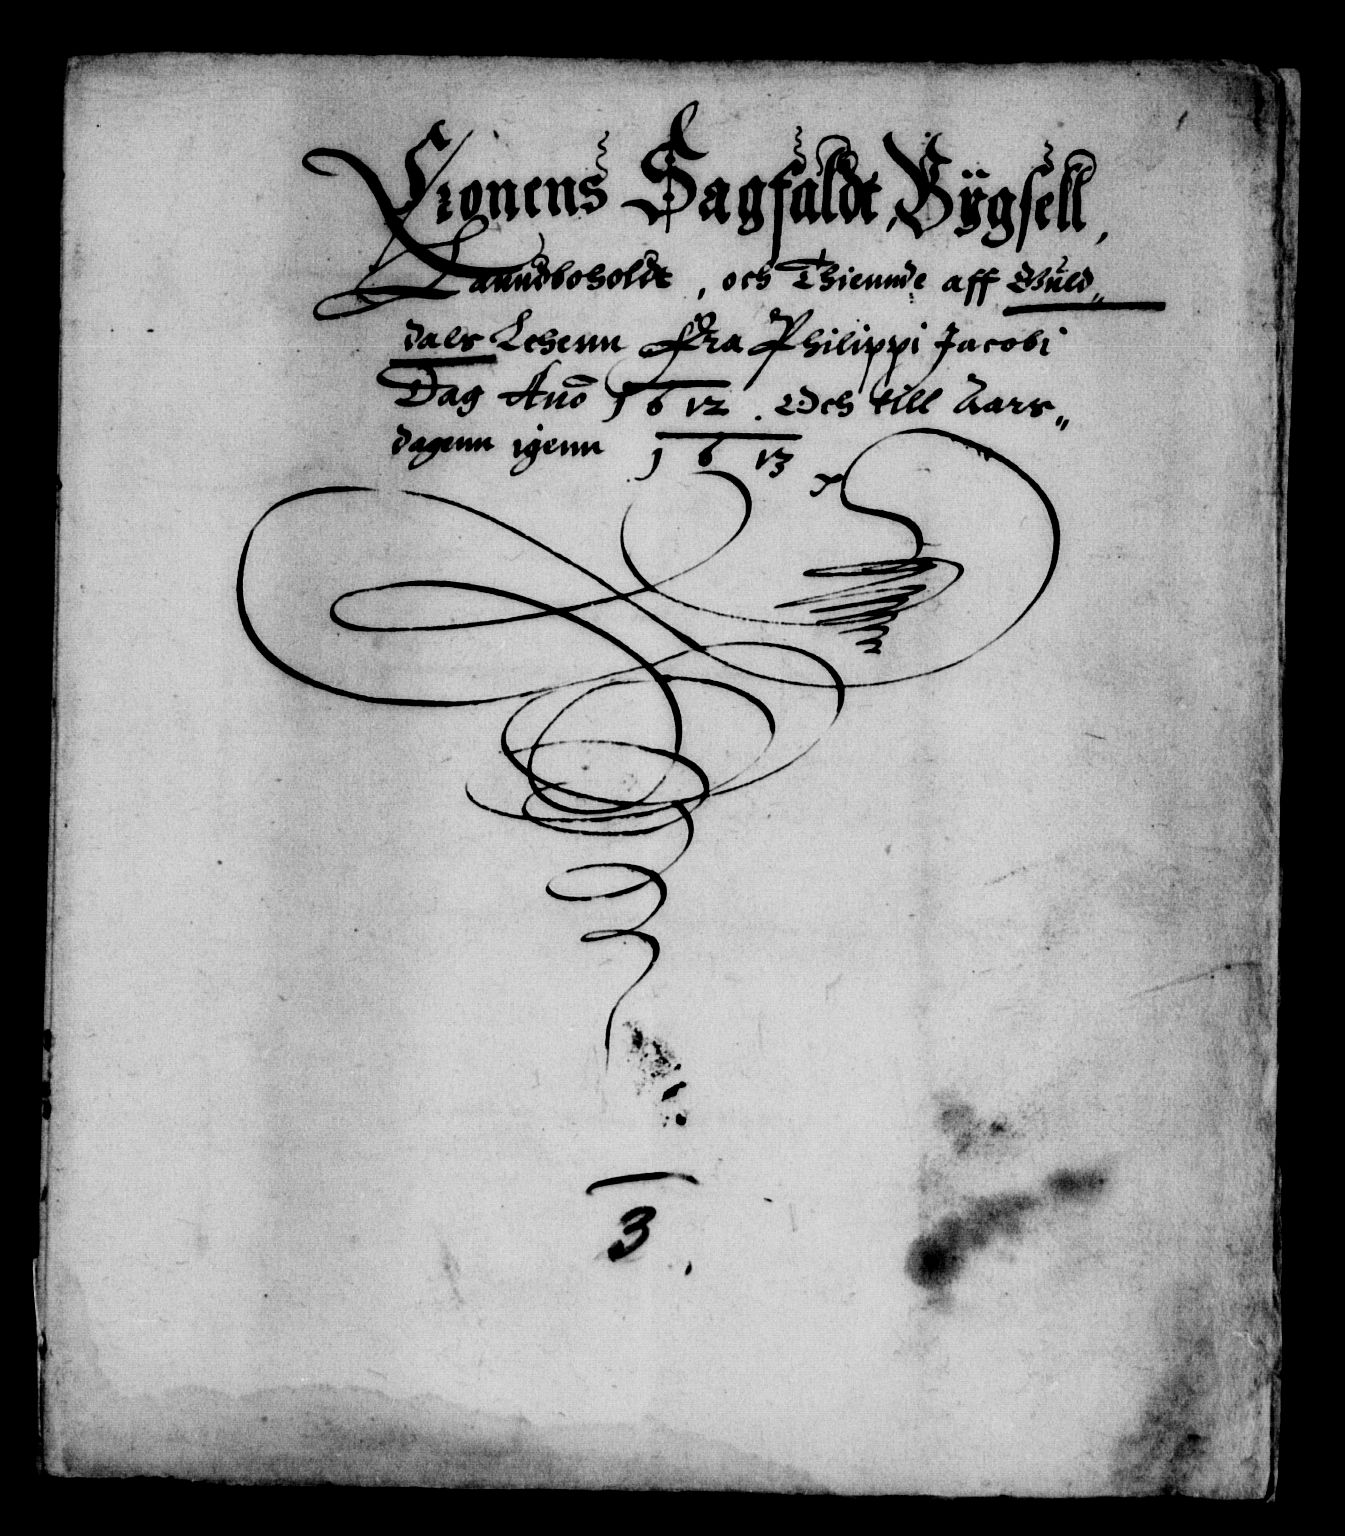 Cronens Sagfaldt, Bÿgsell,
Lanndboholdt, och Thiennde aff Guld„
dals Lehenn Fra Philippi Jacobi
Dag Anō 1612. Och till Aars„
dagenn igenn 1613
3.